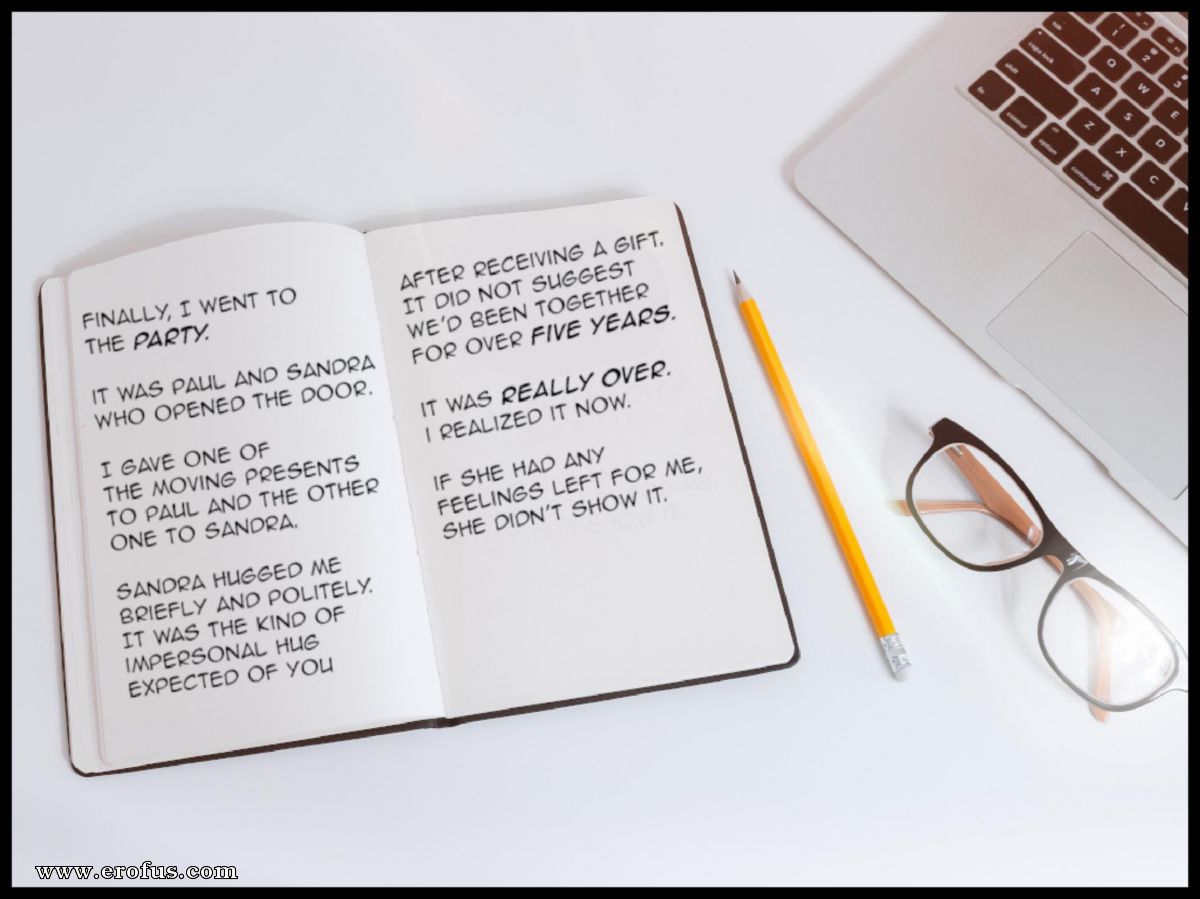 FINALLY, I WENT TO
THE PARTY.
IT WAS PAUL AND SANDRA
WHO OPENED THE DOOR.
I GAVE ONE OF
THE MOVING PRESENTS
TO PAUL AND THE OTHER
ONE TO SANDRA.
SANDRA HUGGED ME
BRIEFLY AND POLITELY.
IT WAS THE KIND OF
IMPERSONAL HUG
EXPECTED OF YOU
AFTER RECEIVING A GIFT.
IT DID NOT SUGGEST
WE'D BEEN TOGETHER
FOR OVER FIVE YEARS.
IT WAS REALLY OVER.
I REALIZED IT NOW.
IF SHE HAD ANY
FEELINGS LEFT FOR ME,
SHE DIDN'T SHOW IT.
tab
caps lock
shift
fn
control
option
command
Q
W
A
S
E
Z
D
X
C
1
2
3
www.erofus.com